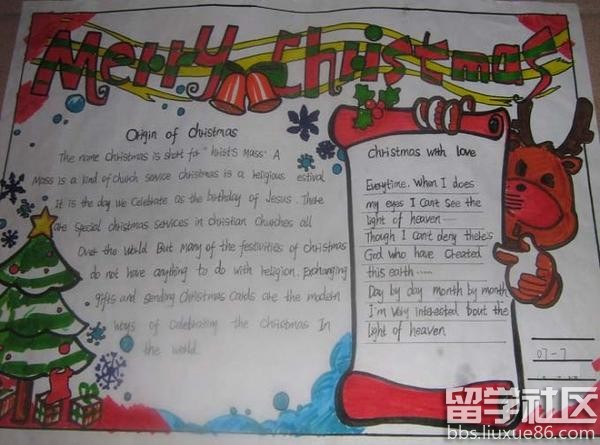 Merry Christmas
Origin of Christmas
The name christmas is short for "hrist's Mass". A
Mass is a kind of church service christmas is a religious estival
It is the day we celebrate as the birthday of Jesus. There
are special christmas services in christian churches all
Over the World But many of the festivities of christmas
do not have anything to do with religion. Exchanging
gifts and sending Christmas cards are the modern
ways of celebrating the Christmas In
the world.
christmas with love
Everytime. When I does
my eyes I Can't See the
light of heaven······
Though I can't deny there's
God who have created
this earth······
Day by day month by month
I'm very interested bout the
light of heaven
07-7
留学社区
bbs.liuxue86.com